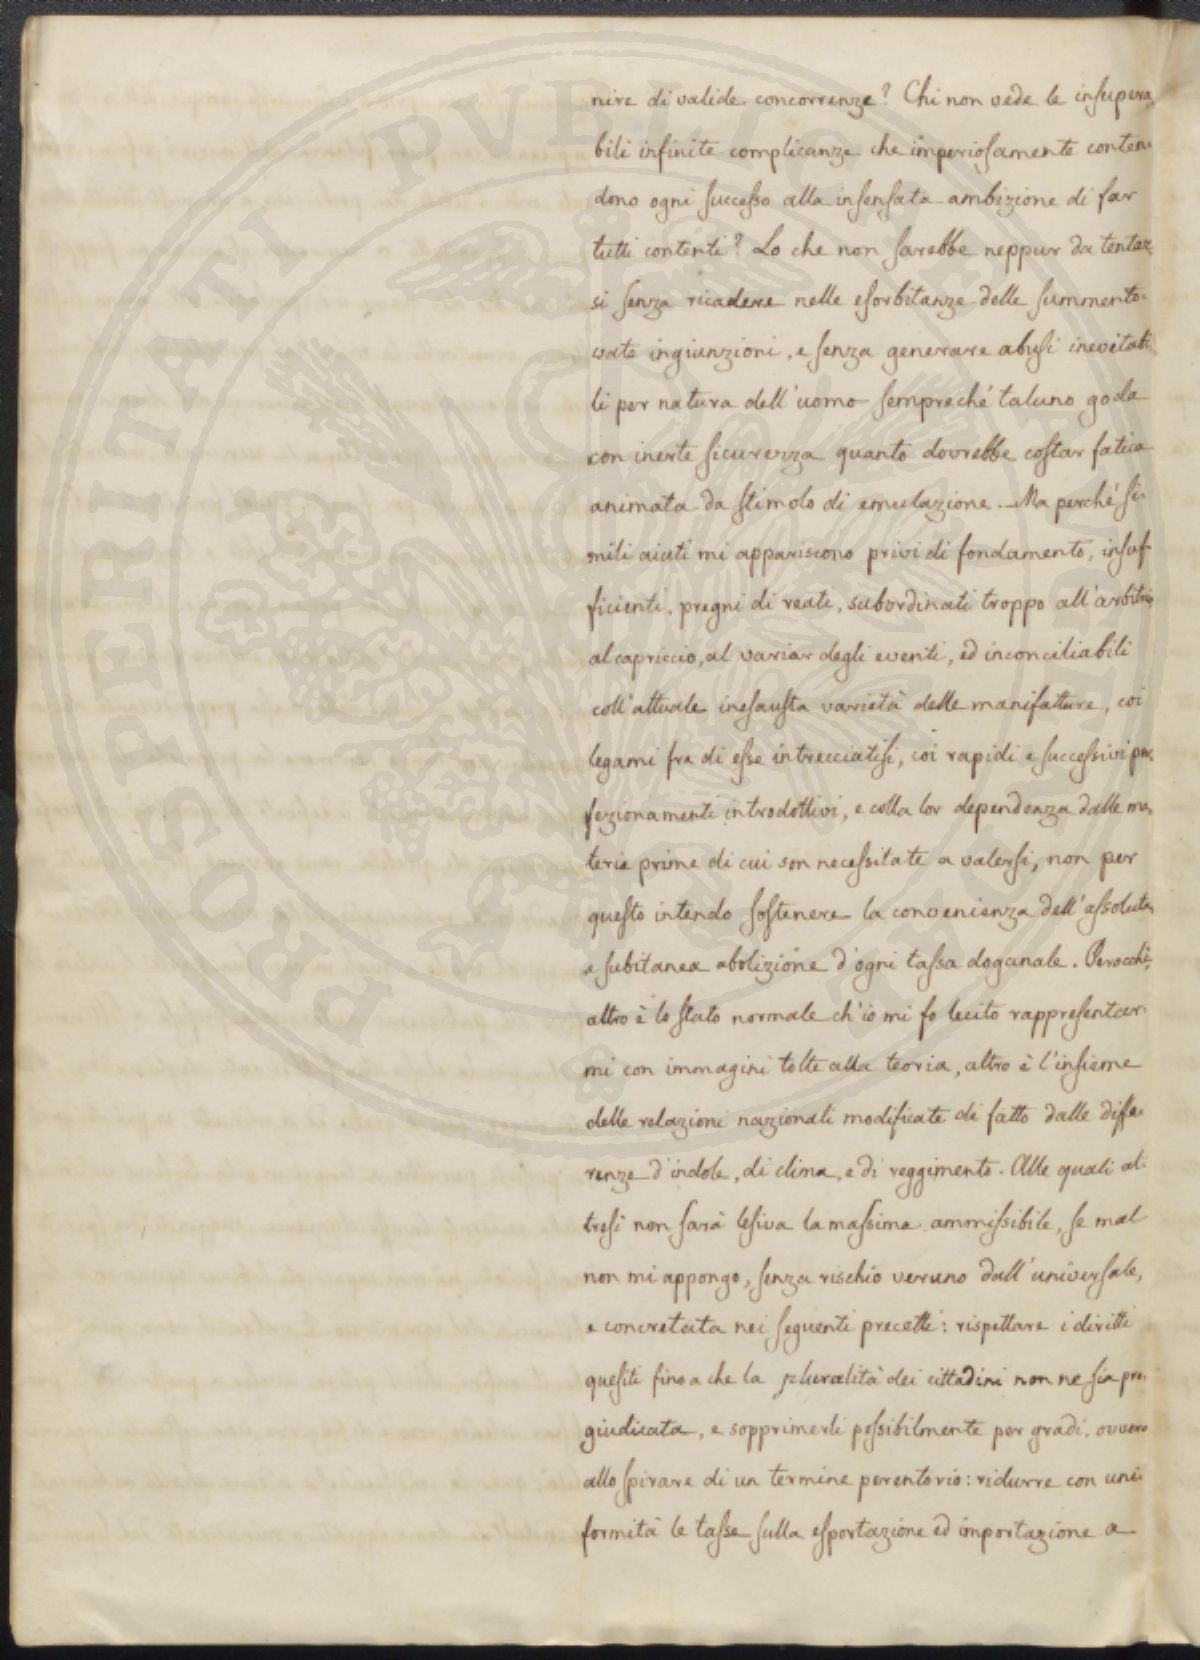 nire di valide concorrenze? Chi non vede le insupera
bili infinite complicanze che imperiosamente conten-
dono ogni successo alla insensata ambizione di far
tutti contenti? Lo che non sarebbe neppur da tentar
si senza ricadere nelle esorbitanze delle summento-
vate ingiunzioni, e senza generare abusi inevitabi
li per natura dell'uomo sempreché taluno goda
con inerte sicurezza quanto dovrebbe costar fatica
animata da stimolo di emulazione. Ma perché si-
mili aiuti mi appariscono privi di fondamento, insuf-
ficienti, pregni di reati, subordinati troppo all'arbitrio,
al capriccio, al variar degli eventi, ed inconciliabili
coll'attuale inesausta varietà delle manifatture, coi
legami fra di esse intrecciatisi, coi rapidi e successivi per
fezionamenti introdottivi, e colla lor dependenza dalle ma-
terie prime di cui son necessitate a valersi, non per
questo intendo sostenere la convenienza dell'assoluta,
e subitanea abolizione d'ogni tassa doganale. Perocchè
altro è lo stato normale ch'io mi fo lecito rappresentar-
mi con immagini tolte alla teoria, altro è l'insieme
delle relazioni nazionali modificate di fatto dalle diffe-
renze d'indole, di clima, e di reggimento. Alle quali al-
tresì non sarà lesiva la massima ammissibile, se mal
non mi appongo, senza rischio veruno dall'universale,
e concretata nei seguenti precetti: rispettare i diritti
quesiti fino a che la pluralità dei cittadini non ne sia pre-
giudicata, e sopprimerli possibilmente per gradi, ovvero
allo spirare di un termine perentorio: ridurre con uni-
formità le tasse sulla esportazione ed importazione a
PROSPERITATI PVBLICAE